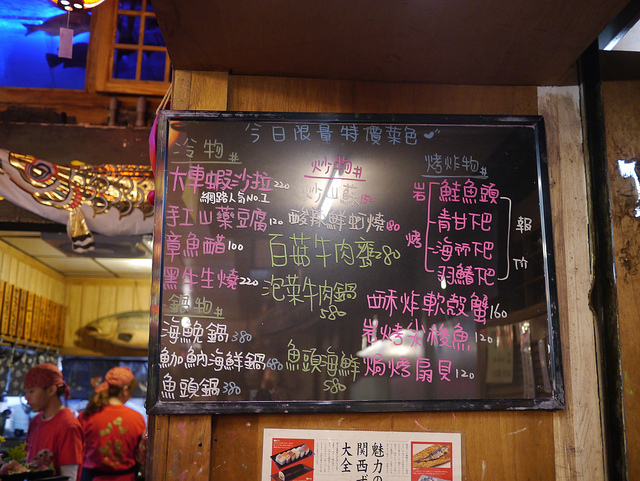 今日限量特價菜色
冷物
大車蝦沙拉 220
網路人氣No.1
手工山藥豆腐 120
章魚醋 100
黑牛生燒 220
鍋物
海鮸鍋 380
魚加魶海鮮鍋 680
魚頭鍋 380
炒物
炒山蘇 150
酸辣鮮蚵燒 180
百菇牛肉齋 280
泡菜牛肉鍋
580
魚頭海鮮
580
烤炸物
岩
烤
鮭魚頭
青甘下巴
海鱺下巴
羽鰭下巴
報
竹
酥炸軟殼蟹 160
岩烤尖梭魚 120
焗烤扇貝 120
魅力の
関西
大全